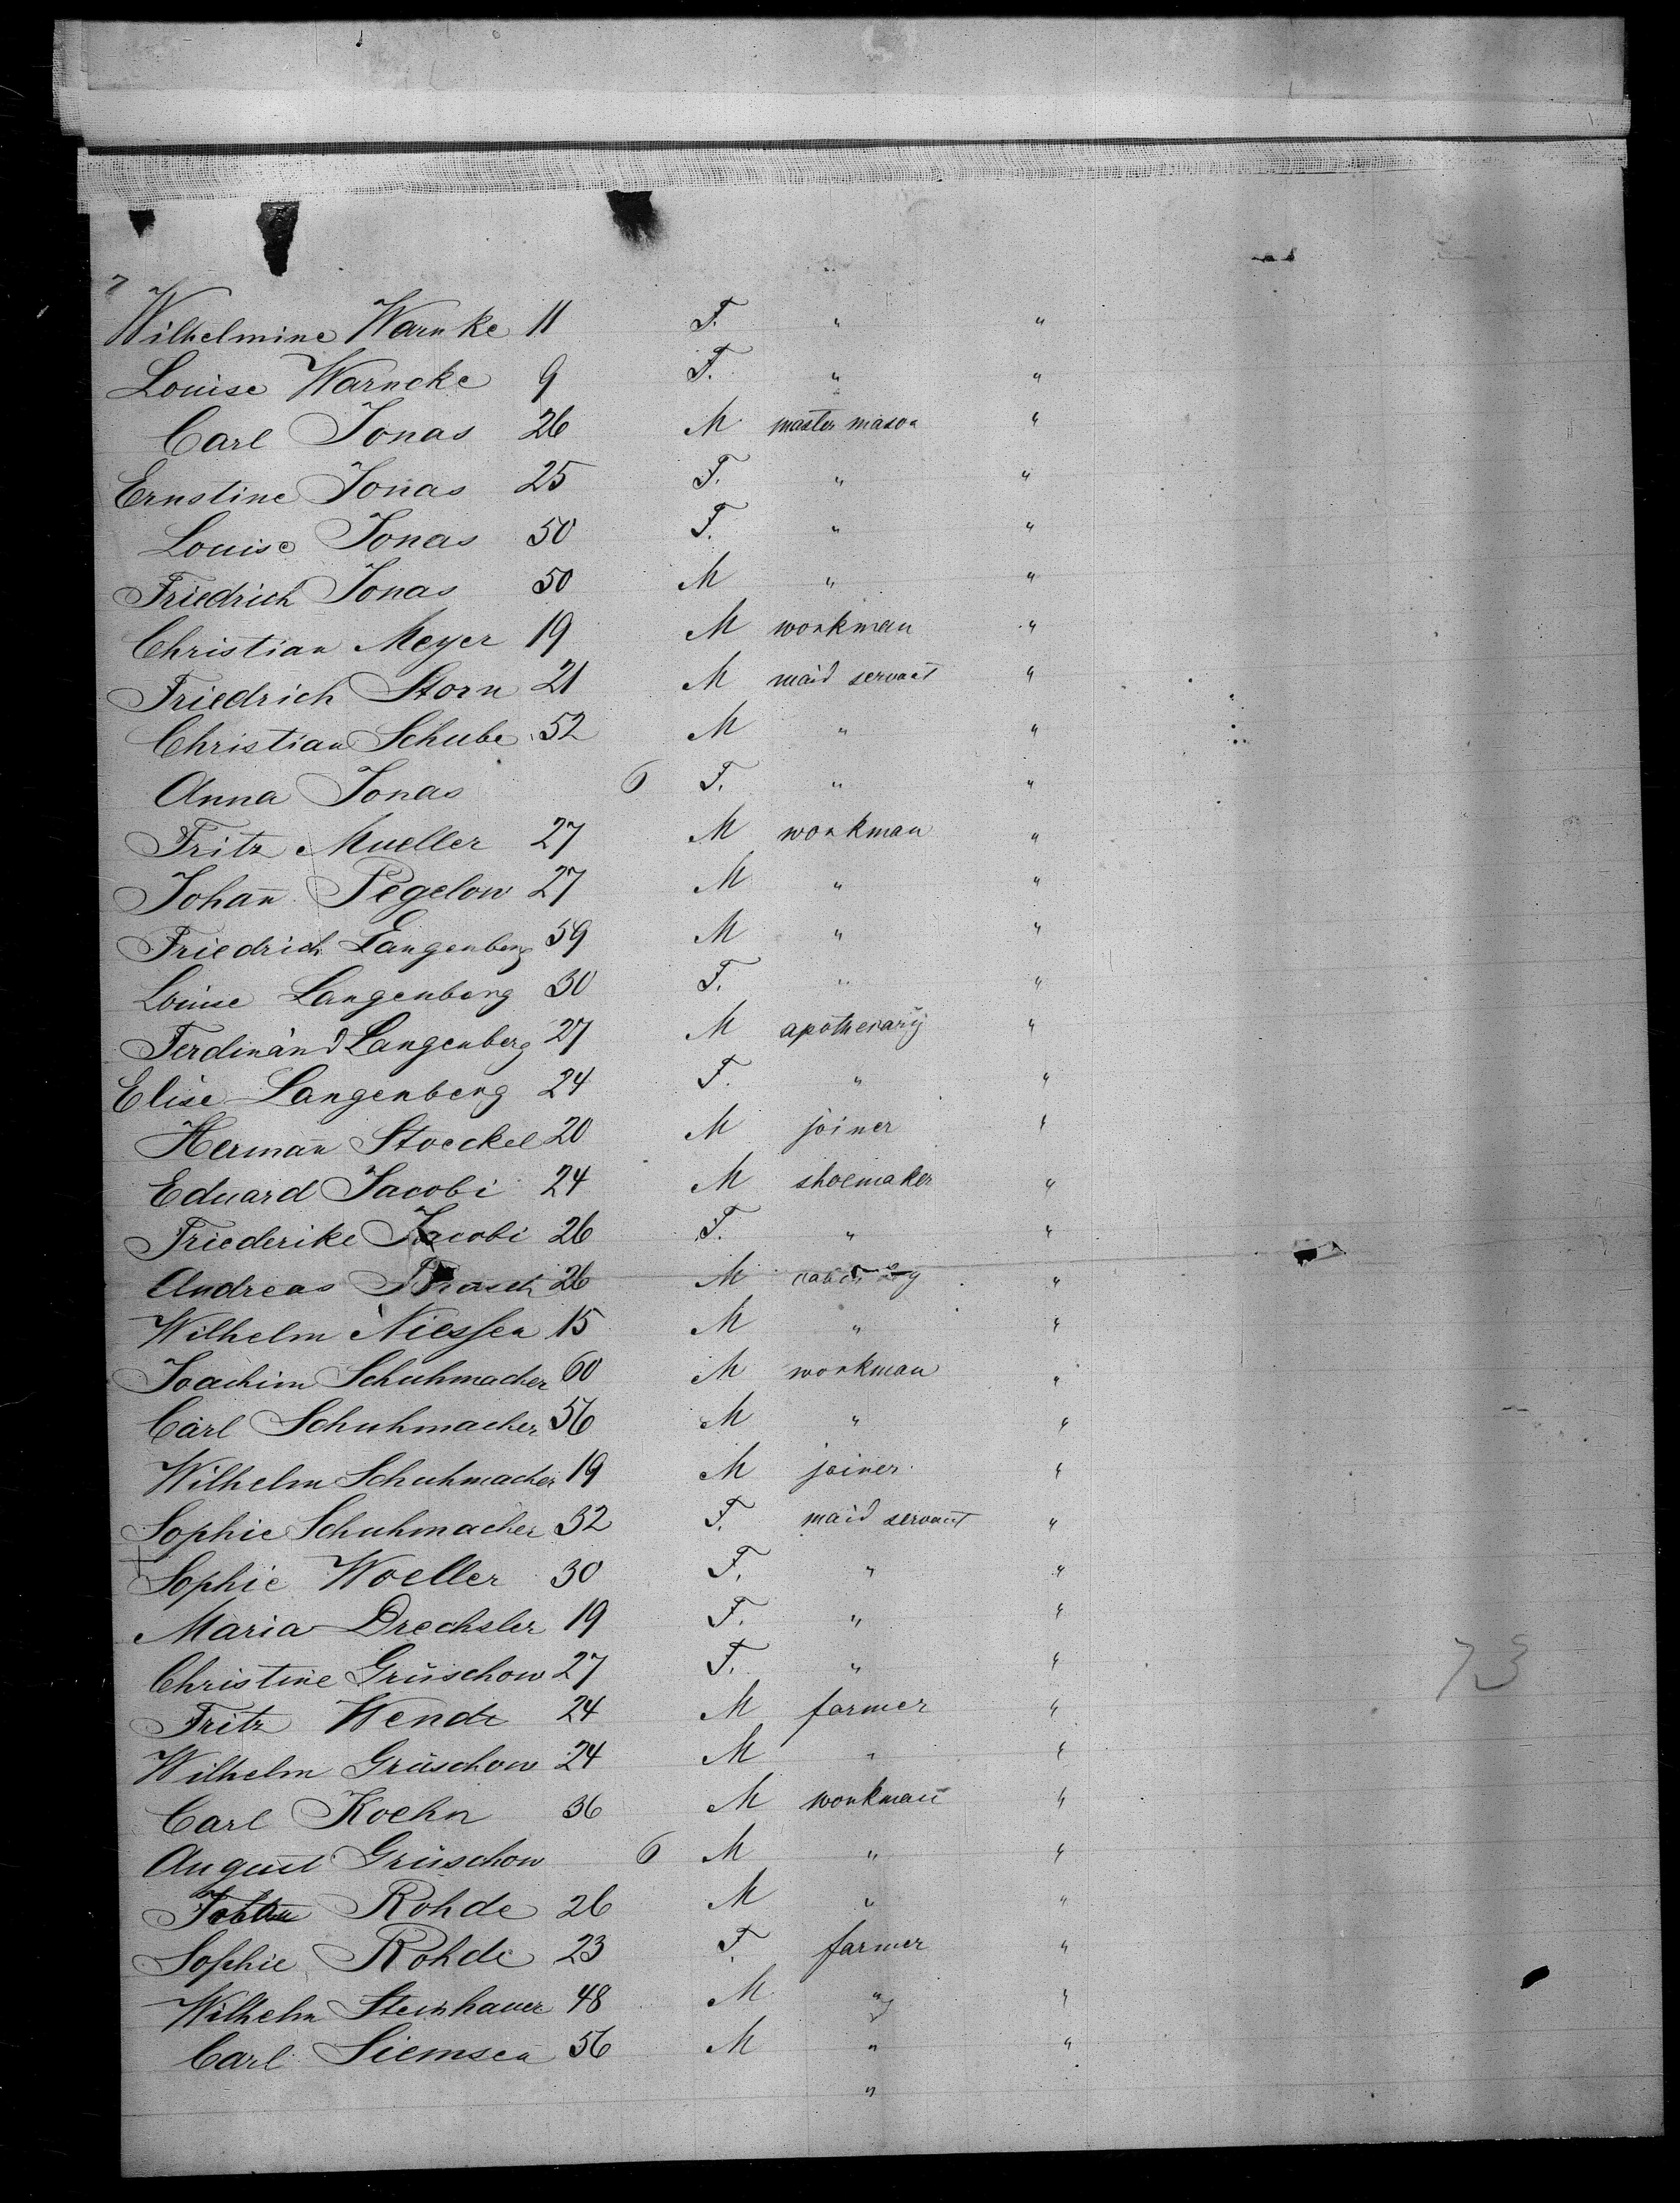 Wilhelmine Warnke 11 F. " "
Louise Warncke 9 F. " "
Carl Jonas 26 M master mason "
Ernstine Jonas 25 F. " "
Louise Jonas 50 F. " "
Friedrich Jonas 50 M " "
Christian Meyer 19 M workman "
Friedrich Storn 21 M maid servant "
Christian Schube 52 M " "
Anna Jonas 6 F. " "
Fritz Mueller 27 M workman "
Johan̄ Pegelow 27 M " "
Friedrich Langenberg 59 M " "
Louise Langenberg 30 F. " "
Ferdinand Langenberg 27 M apothecary "
Elise Langenberg 24 F. " "
Herman̄ Stoeckel 20 M joiner "
Eduard Jacobi 24 M shoemaker "
Friederike Jacobi 26 F. " "
Andreas 26 M "
Wilhelm Niessen 15 M " "
Joachim Schuhmacher 60 M workman "
Carl Schuhmacher 56 M " "
Wilhelm Schuhmacher 19 M joiner "
Sophie Schuhmacher 32 F. maid servant "
+ Sophie Woeller 30 F. " "
Maria Drechsler 19 F. " "
Christine Grüschow 27 F. " "
73
Fritz Wende 24 M farmer "
Wilhelm Grüschow 24 M " "
Carl Koehn 36 M workman "
August Grüschow 6 M " "
Rohde 26 M " "
Sophie Rohde 23 F. farmer "
Wilhelm Steinhauer 48 M " "
Carl Siemsen 56 M " "
"